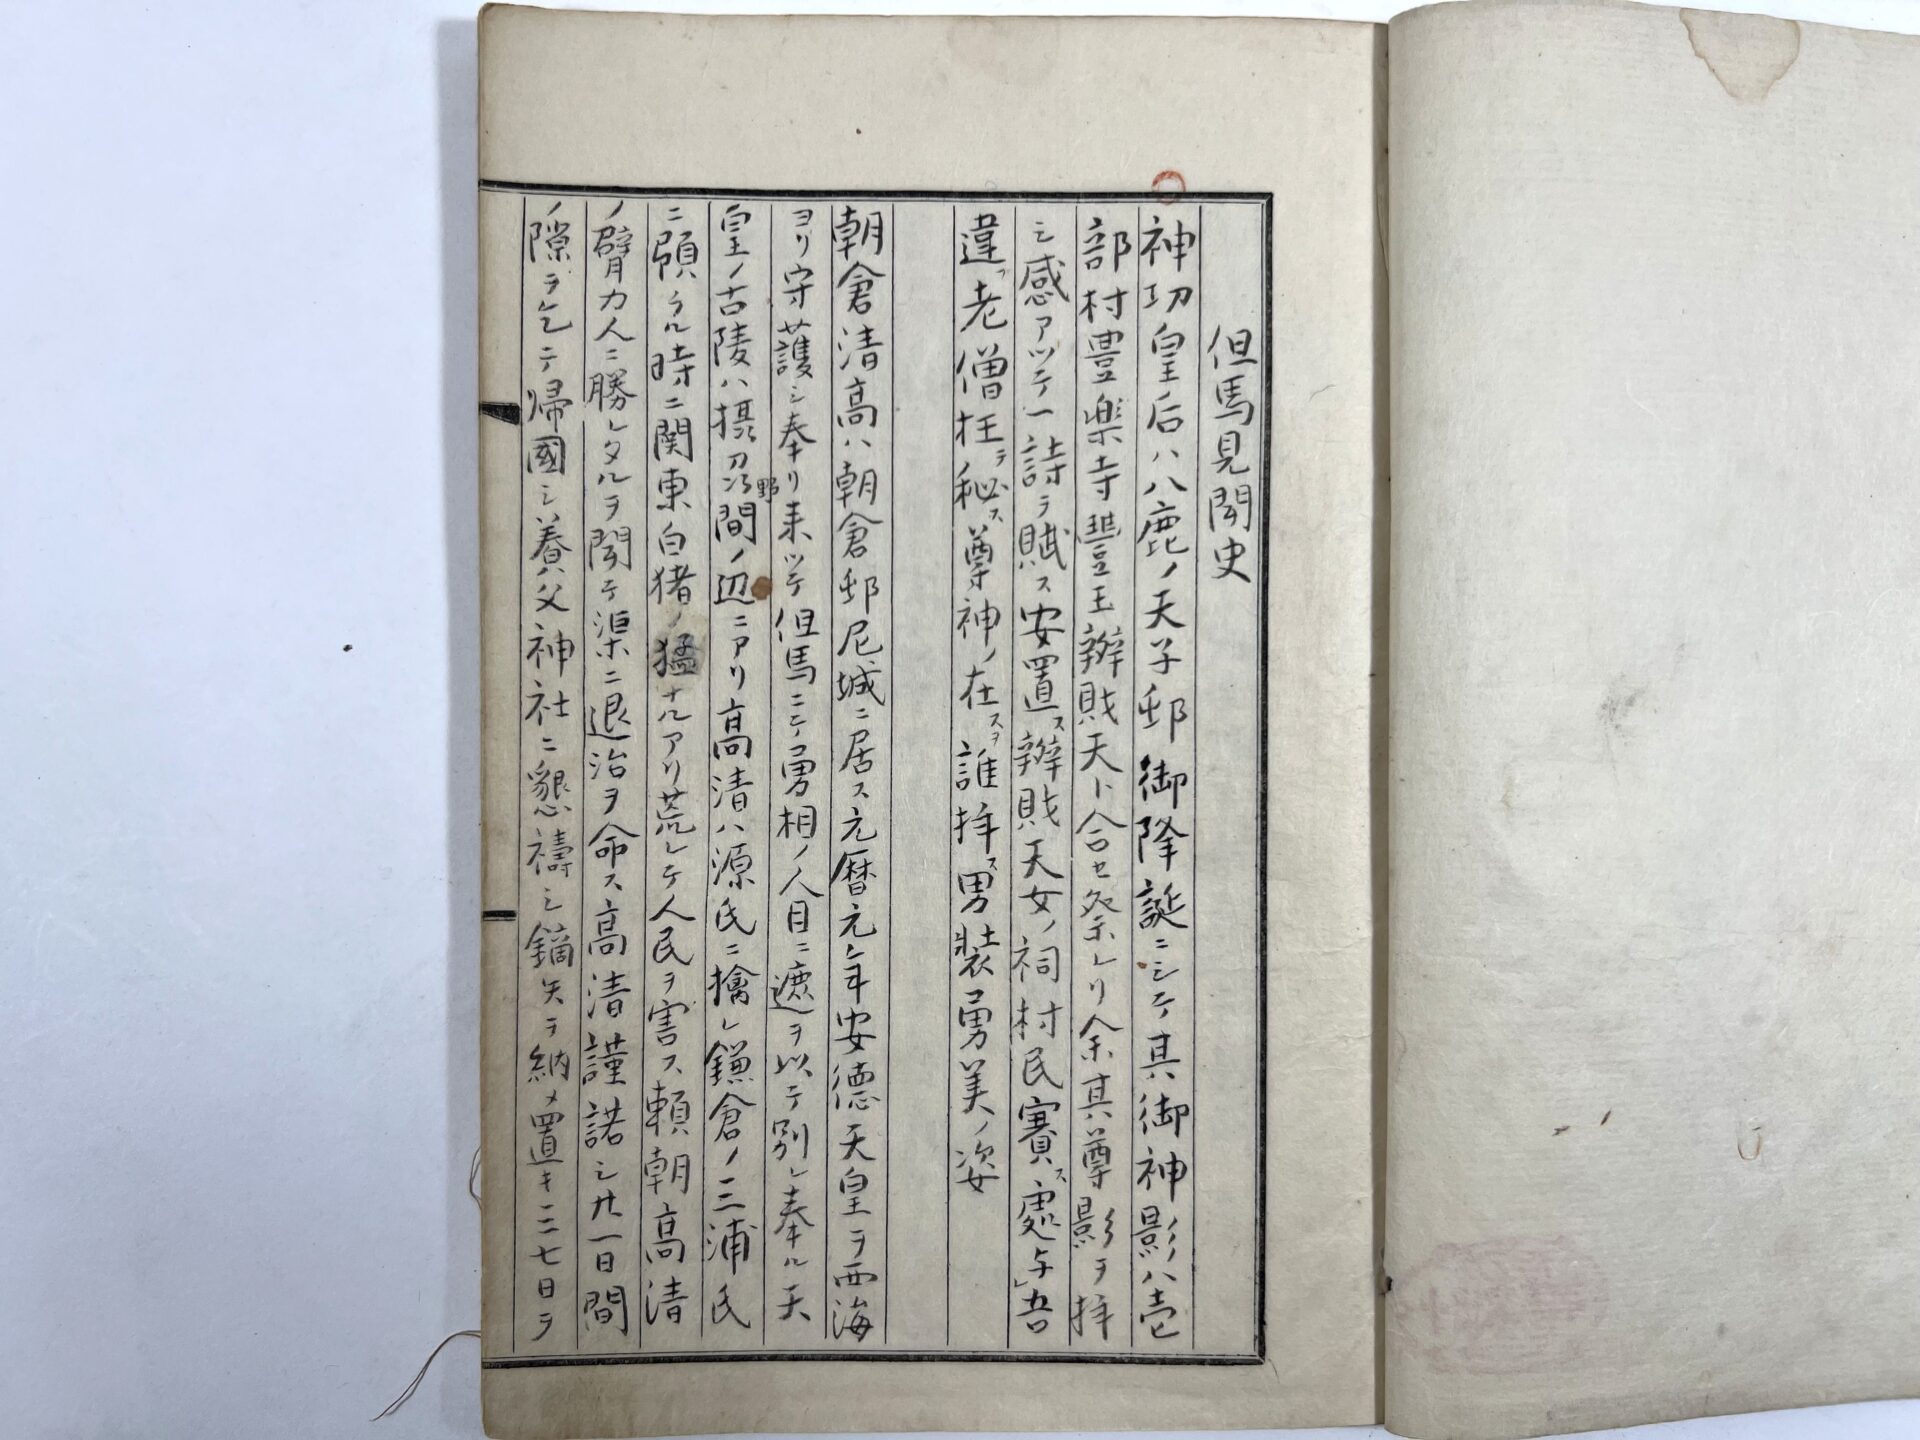 但馬見聞史
神功皇后ハ八鹿ノ天子邨御降誕ニシテ其御神影ハ壱
部村豊楽寺豊玉辦賊天ト合セ祭レリ余其尊影ヲ拝
シ感アツテ一詩ヲ賦ス安置ス辦賊天女ノ祠村民賽ス處与吾
違フ老僧枉テ秘ス尊神ノ在スヲ誰拝ス男装勇美ノ姿
朝倉清高ハ朝倉邨尼城ニ居ス元暦元年安徳天皇ヲ西海
ヨリ守護シ奉リ来ツテ但馬ニテ勇相ノ人目ニ遮ヲ以テ別レ奉ル天
皇ノ古陵ハ摂刕野間ノ辺ニアリ高清ハ源氏ニ擒レ鎌倉ノ三浦氏
ニ預ケル時ニ関東白猪ノ猛ナルアリ荒レテ人民ヲ害ス頼朝高清
ノ膂力人ニ勝レタルヲ聞テ渠ニ退治ヲ命ス高清謹諾シ廿一日間
ノ隙ヲ乞テ帰國シ養父神社ニ懇禱シ鏑矢ヲ納メ置キ二七日ヲ